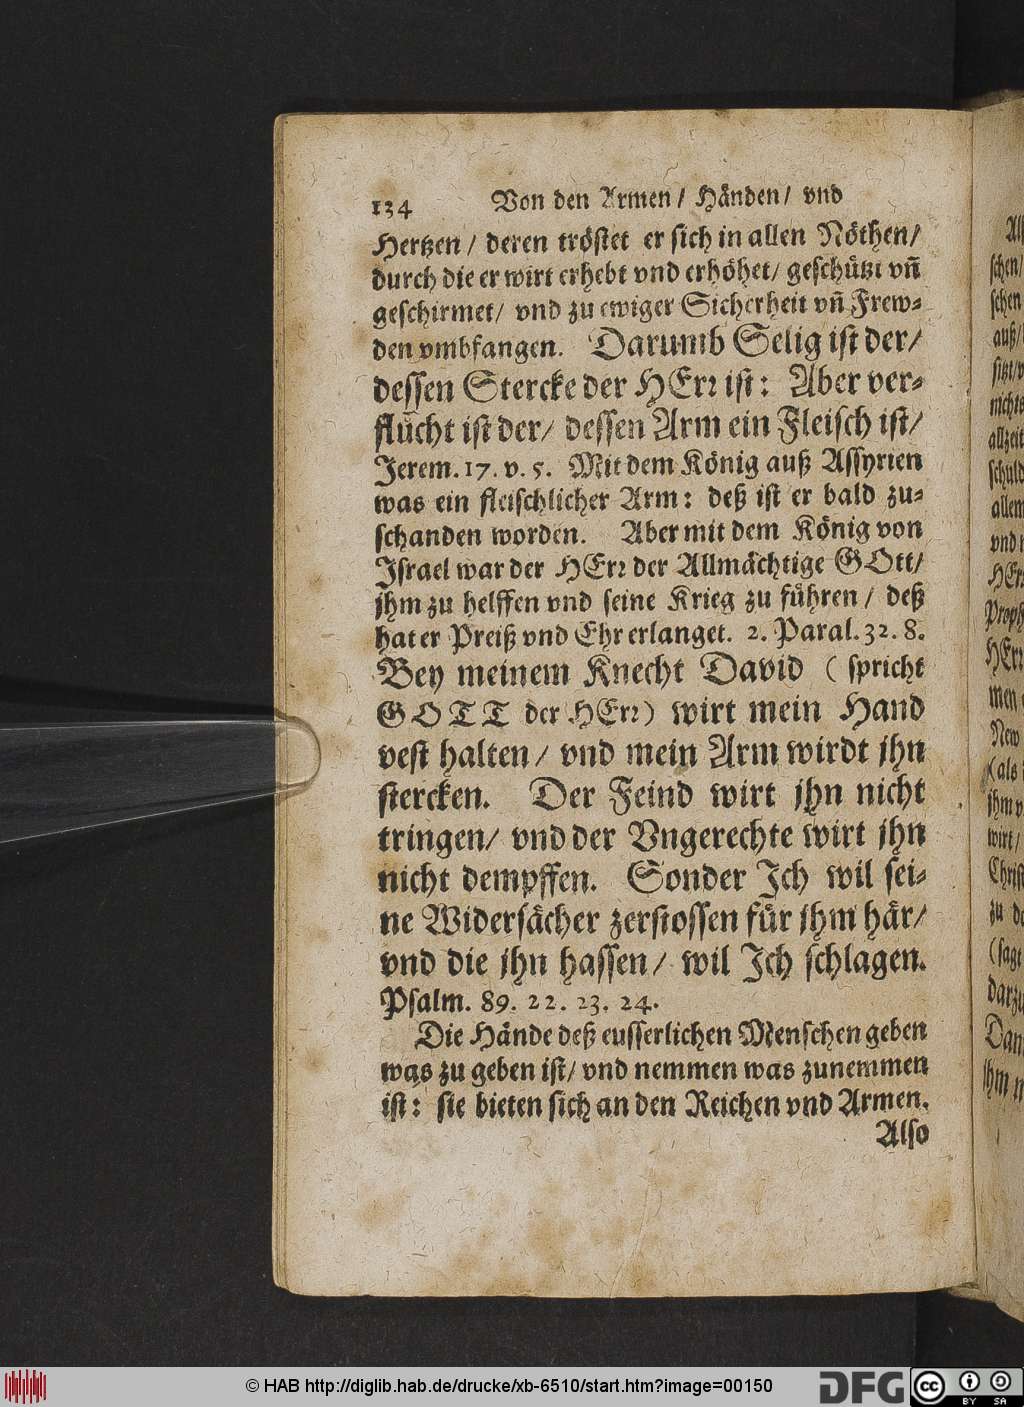 134 Von den Armen / Händen / vnd
Hertzen / deren tröstet er sich in allen Nöthen /
durch die er wirt erhebt vnd erhöhet / geschützt vn̄
geschirmet / vnd zu ewiger Sicherheit vn̄ Frew-
den vmbfangen. Darumb Selig ist der /
dessen Stercke der HErꝛ ist: Aber ver-
flucht ist der / dessen Arm ein Fleisch ist /
Jerem. 17. v. 5. Mit dem König auß Assyrien
was ein fleischlicher Arm: deß ist er bald zu-
schanden worden. Aber mit dem König von
Israel war der HErꝛ der Allmächtige GOtt /
jhm zu helffen vnd seine Krieg zu führen / deß
hat er Preiß vnd Ehr erlanget. 2. Paral. 32. 8.
Bey meinem Knecht David ( spricht
GOTT der HErꝛ ) wirt mein Hand
vest halten / vnd mein Arm wirdt jhn
stercken. Der Feind wirt jhn nicht
tringen / vnd der Vngerechte wirt jhn
nicht dempffen. Sonder Ich wil sei-
ne Widersächer zerstossen für jhm här /
vnd die jhn hassen / wil Ich schlagen.
Psalm. 89. 22. 23. 24.
Die Hände deß eusserlichen Menschen geben
was zu geben ist / vnd nemmen was zunemmen
ist: sie bieten sich an den Reichen vnd Armen.
Also
© HAB http://diglib.hab.de/drucke/xb-6510/start.htm?image=00150
DFG
cc BY SA